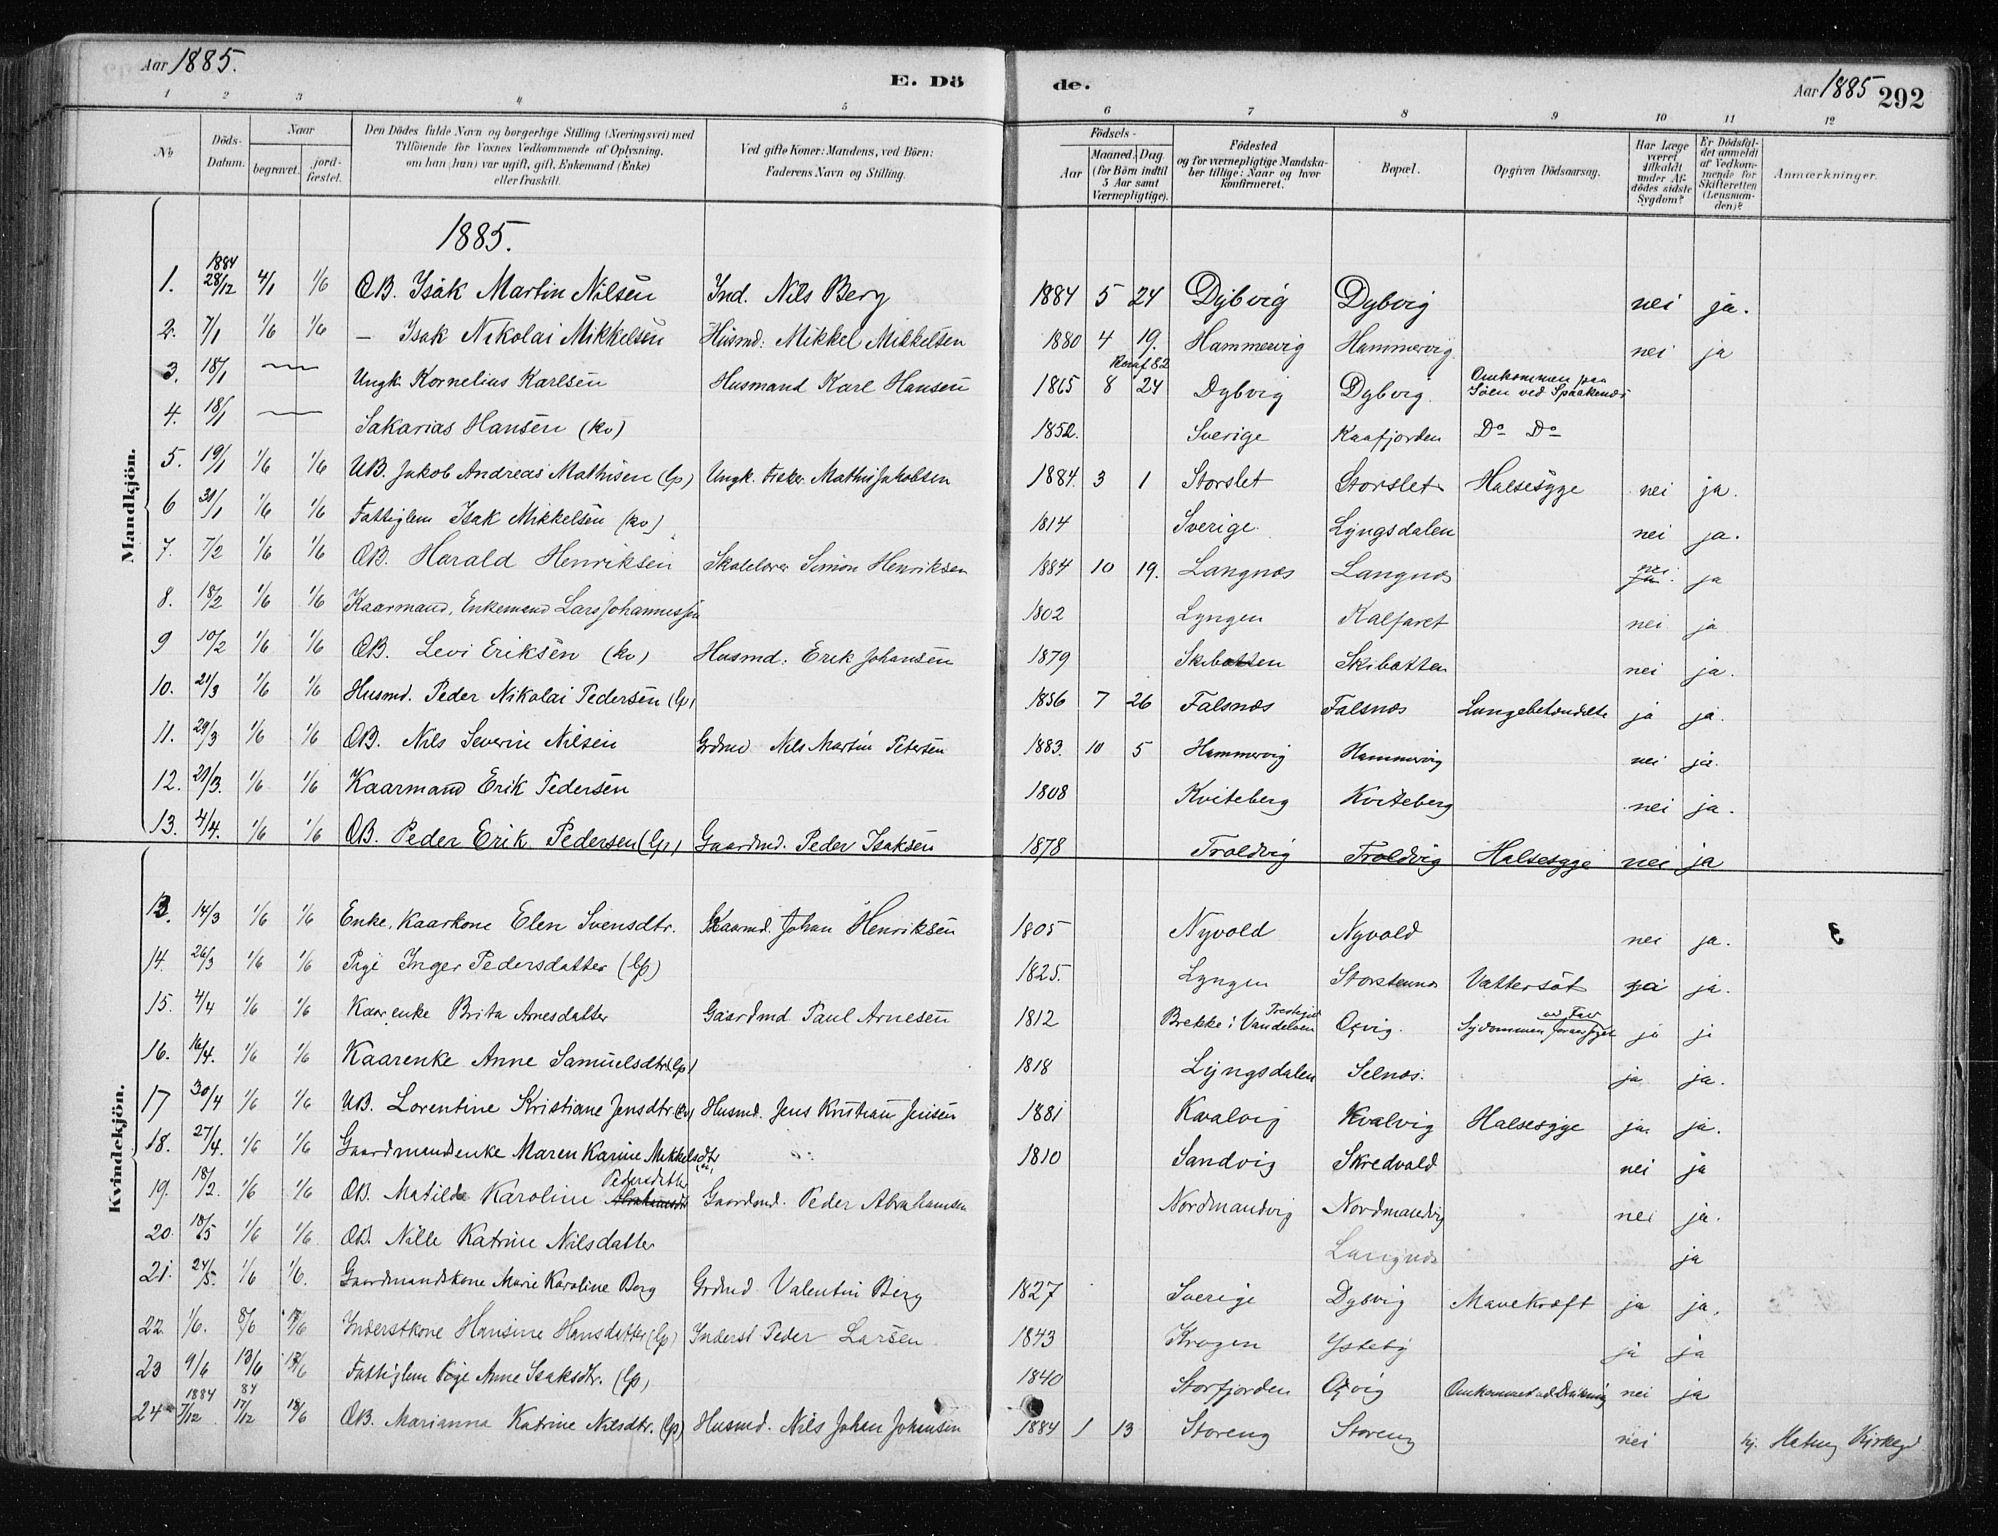 Aar 1885.
E. Dö
de.
Aar 1885
292
1 2 3 4 5 6 7 8 9 10 11 12
No
Döds-Datum.
Naar
begravet.
jord-fæstet.
Den Dödes fulde Navn og borgerlige Stilling (Næringsvei) med
Tilföiende for Voxnes Vedkommende af Oplysning,
om han (hun) var ugift, gift, Enkemand (Enke)
eller fraskilt.
Ved gifte Koner: Mandens, ved Börn:
Faderens Navn og Stilling.
Födsels-
Aar
Maaned. Dag
(for Börn indtil
5 Aar samt
Værnepligtige).
Födested
og for værnepligtige Mandska-
ber tillige: Naar og hvor
konfirmeret.
Bopæl.
Opgiven Dödsaarsag.
Har Læge
været
tilkaldt
under Af-
dödes sidste
Sygdom?
Er Dödsfal-
det anmeldt
af Vedkom-
mende for
Skifteretten
(Lensman-
den)?
Anmærkninger.
Mandkjön.
1885.
1. 1884 28/12 4/1 1/6 ÆB. Isak Martin Nilsen Ind. Nils Berg 1884 5 24 Dybvig Dybvig nei ja.
2. 7/1 1/6 1/6 — Isak Nikolai Mikkelsen Husmd: Mikkel Mikkelsen 1880 4 19. Hammervig Hammervig nei ja
3. 18/1 — Ungk. Kornelius Karlsen Husmand Karl Hansen 1865 8 24 Dybvig Dybvig. Omkommen paa Söen ved Spaakenes
4. 18/1 — Sakarias Hansen (kv) 1852. Sverige Kaafjorden Do Do
5. 19/1 1/6 1/6 UB. Jakob Andreas Mathisen (lp) Ungk. Fisker Mathis Jakobsen 1884. 3 1 Storslet Storslet Halsesyge nei ja.
6 31/1 1/6 1/6 Fattiglem Isak Mikkelsen (kv) 1814 Sverige. Lyngsdalen nei ja.
7. 7/2 1/6 1/6 ÆB. Harald Henriksen Skolelærer Simon Henriksen 1884 10 19. Langnæs Langnæs nei ja
8. 18/2 1/6 1/6 Kaarmand, Enkemand Lars Johannessen 1802 Lyngen Kalfaret nei ja
9 10/2 1/6 1/6 ÆB. Levi Eriksen (kv) Husmd: Erik Johansen 1879 Skibotten Skibotten nei ja.
10. 21/3 1/6 1/6 Husmd. Peder Nikolai Pedersen (lp) 1856 7 26 Falsnæs Falsnæs Lungebetændelse ja ja.
11. 29/3 1/6 1/6 ÆB. Nils Severin Nilsen Grdmd Nils Martin Petersen 1883. 10 5 Hammervig Hammervig nei ja.
12. 21/3. 1/6 1/6 Kaarmand Erik Pedersen 1808 Kviteberg Kviteberg nei ja.
13. 4/4. 1/6 1/6 ÆB. Peder Erik Pedersen (lp) Gaardmd. Peder Isaksen 1878 Troldvig Troldvig Halsesyge nei ja
Kvindekjön.
13. 14/3 1/6 1/6 Enke, Kaarkone Elen Svensdtr. Kaarmd. Johan Henriksen 1805 Nyvold Nyvold nei ja.
14. 26/3 1/6 1/6 Pige Inger Pedersdatter (lp) 1825. Lyngen Storstennes Vattersot ja.
15. 4/4 1/6 1/6 Kaarenke Brita Arnesdatter Gaardmd Paul Arnesen 1812 Brekke i Vandelven ja ja
16. 16/4. 1/6 1/6 Kaarenke Anne Samuelsdtr. (lp) 1818 Lyngsdalen Selnæs. ja ja.
17 30/4 1/6 1/6 UB. Lorentine Kristiane Jensdtr (kv) Husmd. Jens Kristian Jensen 1881 Kvalvig Kvalvig Halsesyge ja ja.
18. 27/4. 1/6 1/6 Gaardmandsenke Maren Karine Mikkelsdtr 1810 Sandvig Skredvold nei ja
19. 18/2. 1/6 1/6 ÆB. Matilde Karoline Pedersdtter Gaardmd. Peder Abrahamsen Nordmandvig Nordmandvig nei ja.
20. 18/5 1/6 1/6 ÆB. Nille Katrine Nilsdatter Langnæs ja
21. 24/5. 1/6 1/6. Gaardmandskone Marie Karoline Berg Grdmd Valentin Berg 1827 Sverige Dybvig Mavekræft ja ja.
22. 1/6. 8/6 Inderstkone Hansine Hansdatter (lp) Inderst Peder Larsen 1843 Krogen Ysteby ja ja
23 9/6 13/6 Fattiglem Pige Anne Isaksdtr. (lp) 1840 Storfjorden nei ja
24 1884 7/12 84 17/12 18/6 ÆB. Marianna Katrine Nilsdtr. (lp) Husmd. Nils Johan Johansen 1884 1 13 Storeng Storeng nei Kirkegd